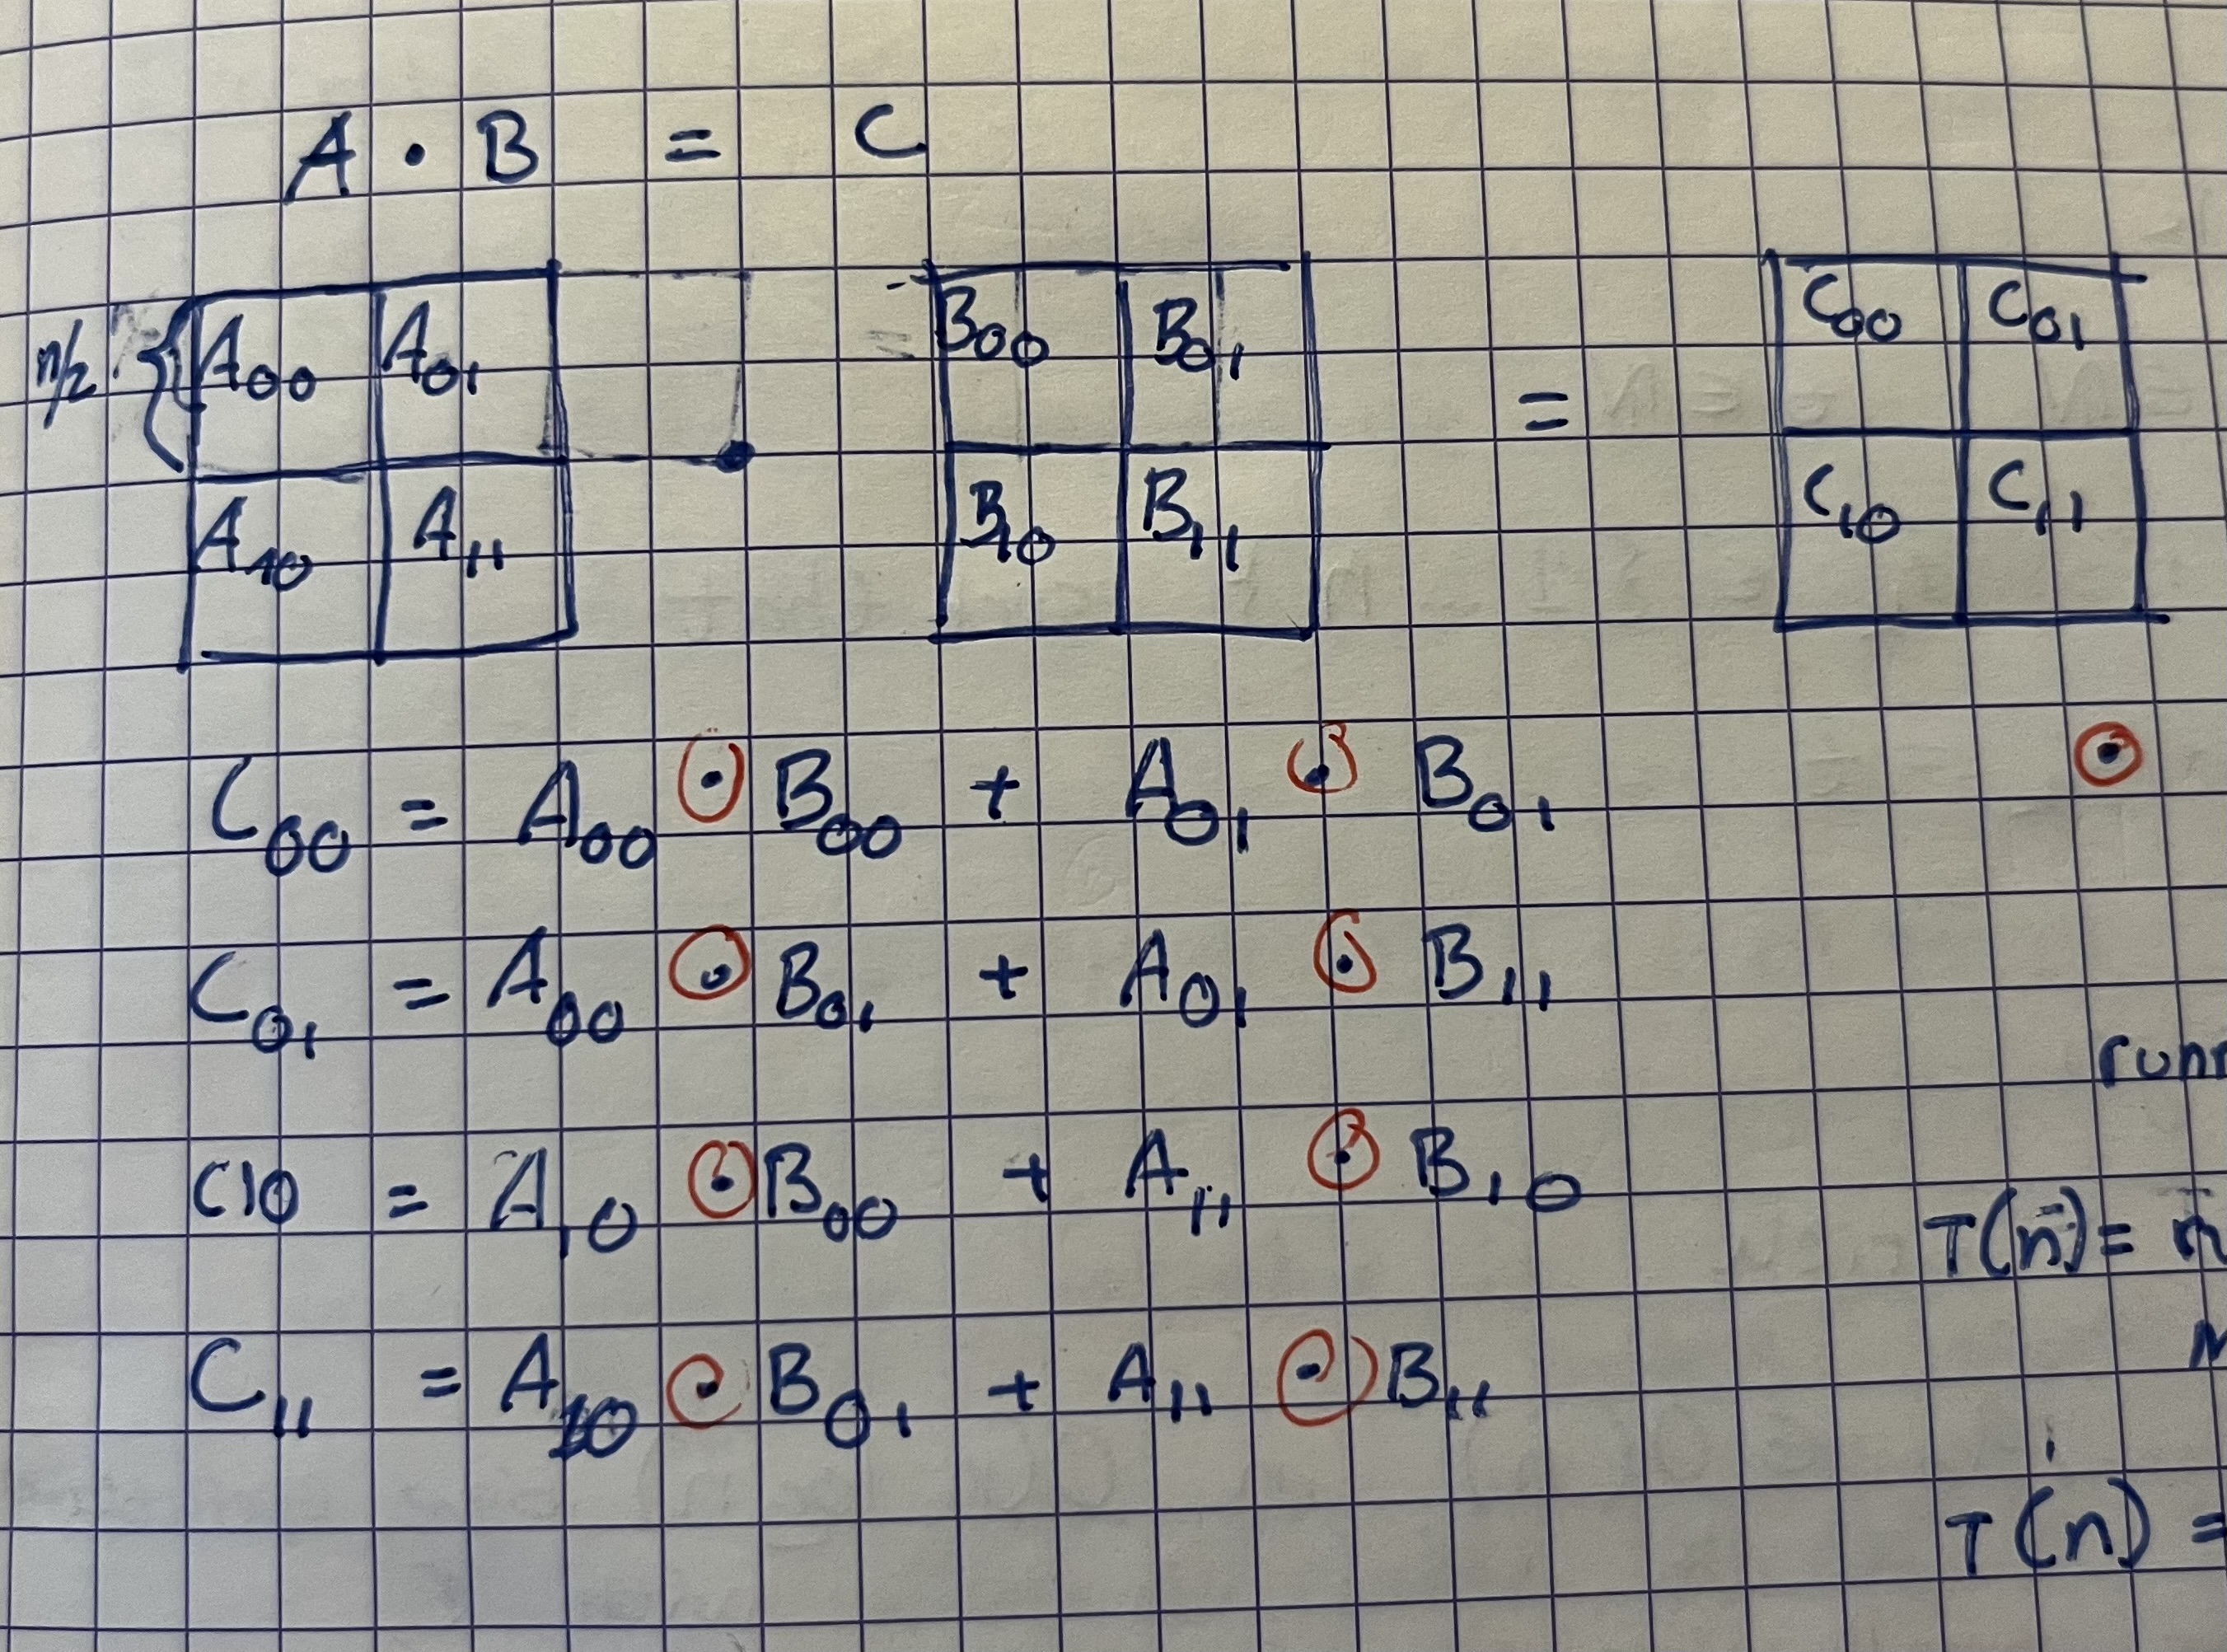 A · B = C
n/2 { A00 A01 B00 B01 = C00 C01
A10 A11 B10 B11 C10 C11
C00 = A00 ⊙ B00 + A01 ⊙ B01 ⊙
C01 = A00 ⊙ B01 + A01 ⊙ B11
C10 = A10 ⊙ B00 + A11 ⊙ B10
T(n) =
C11 = A10 ⊙ B01 + A11 ⊙ B11
T(n) =